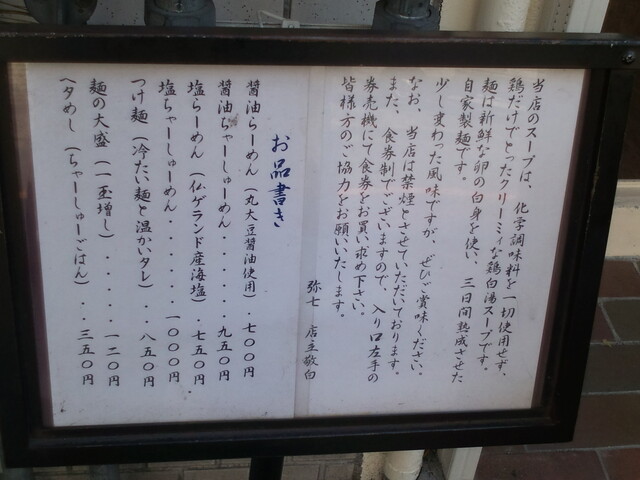 当店のスープは、化学調味料を一切使用せず、
鶏だけでとったクリーミィな鶏白湯スープです。
麺は新鮮な卵の白身を使い、三日間熟成させた
自家製麺です。
少し変わった風味ですが、ぜひご賞味ください。
なお、当店は禁煙とさせていただいております。
また、食券制でございますので、入り口左手の
券売機にて食券をお買い求め下さい。
皆様方のご協力をお願いいたします。
弥七 店主敬白
お品書き
醤油らーめん(丸大豆醤油使用)・・七〇〇円
醤油ちゃーしゅーめん・・・・・・九五〇円
塩らーめん(仏ゲランド産海塩)・・七五〇円
塩ちゃーしゅーめん・・・・・・一〇〇〇円
つけ麺(冷たい麺と温かいタレ)・・八五〇円
麺の大盛(一玉増し)・・・・・一二〇円
ヘタめし(ちゃーしゅーごはん)・・三五〇円